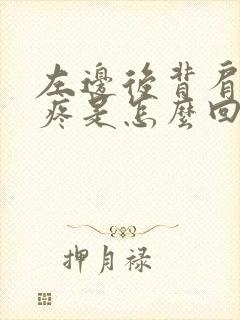 左邊後背肩
疼是怎麼回
押月禄